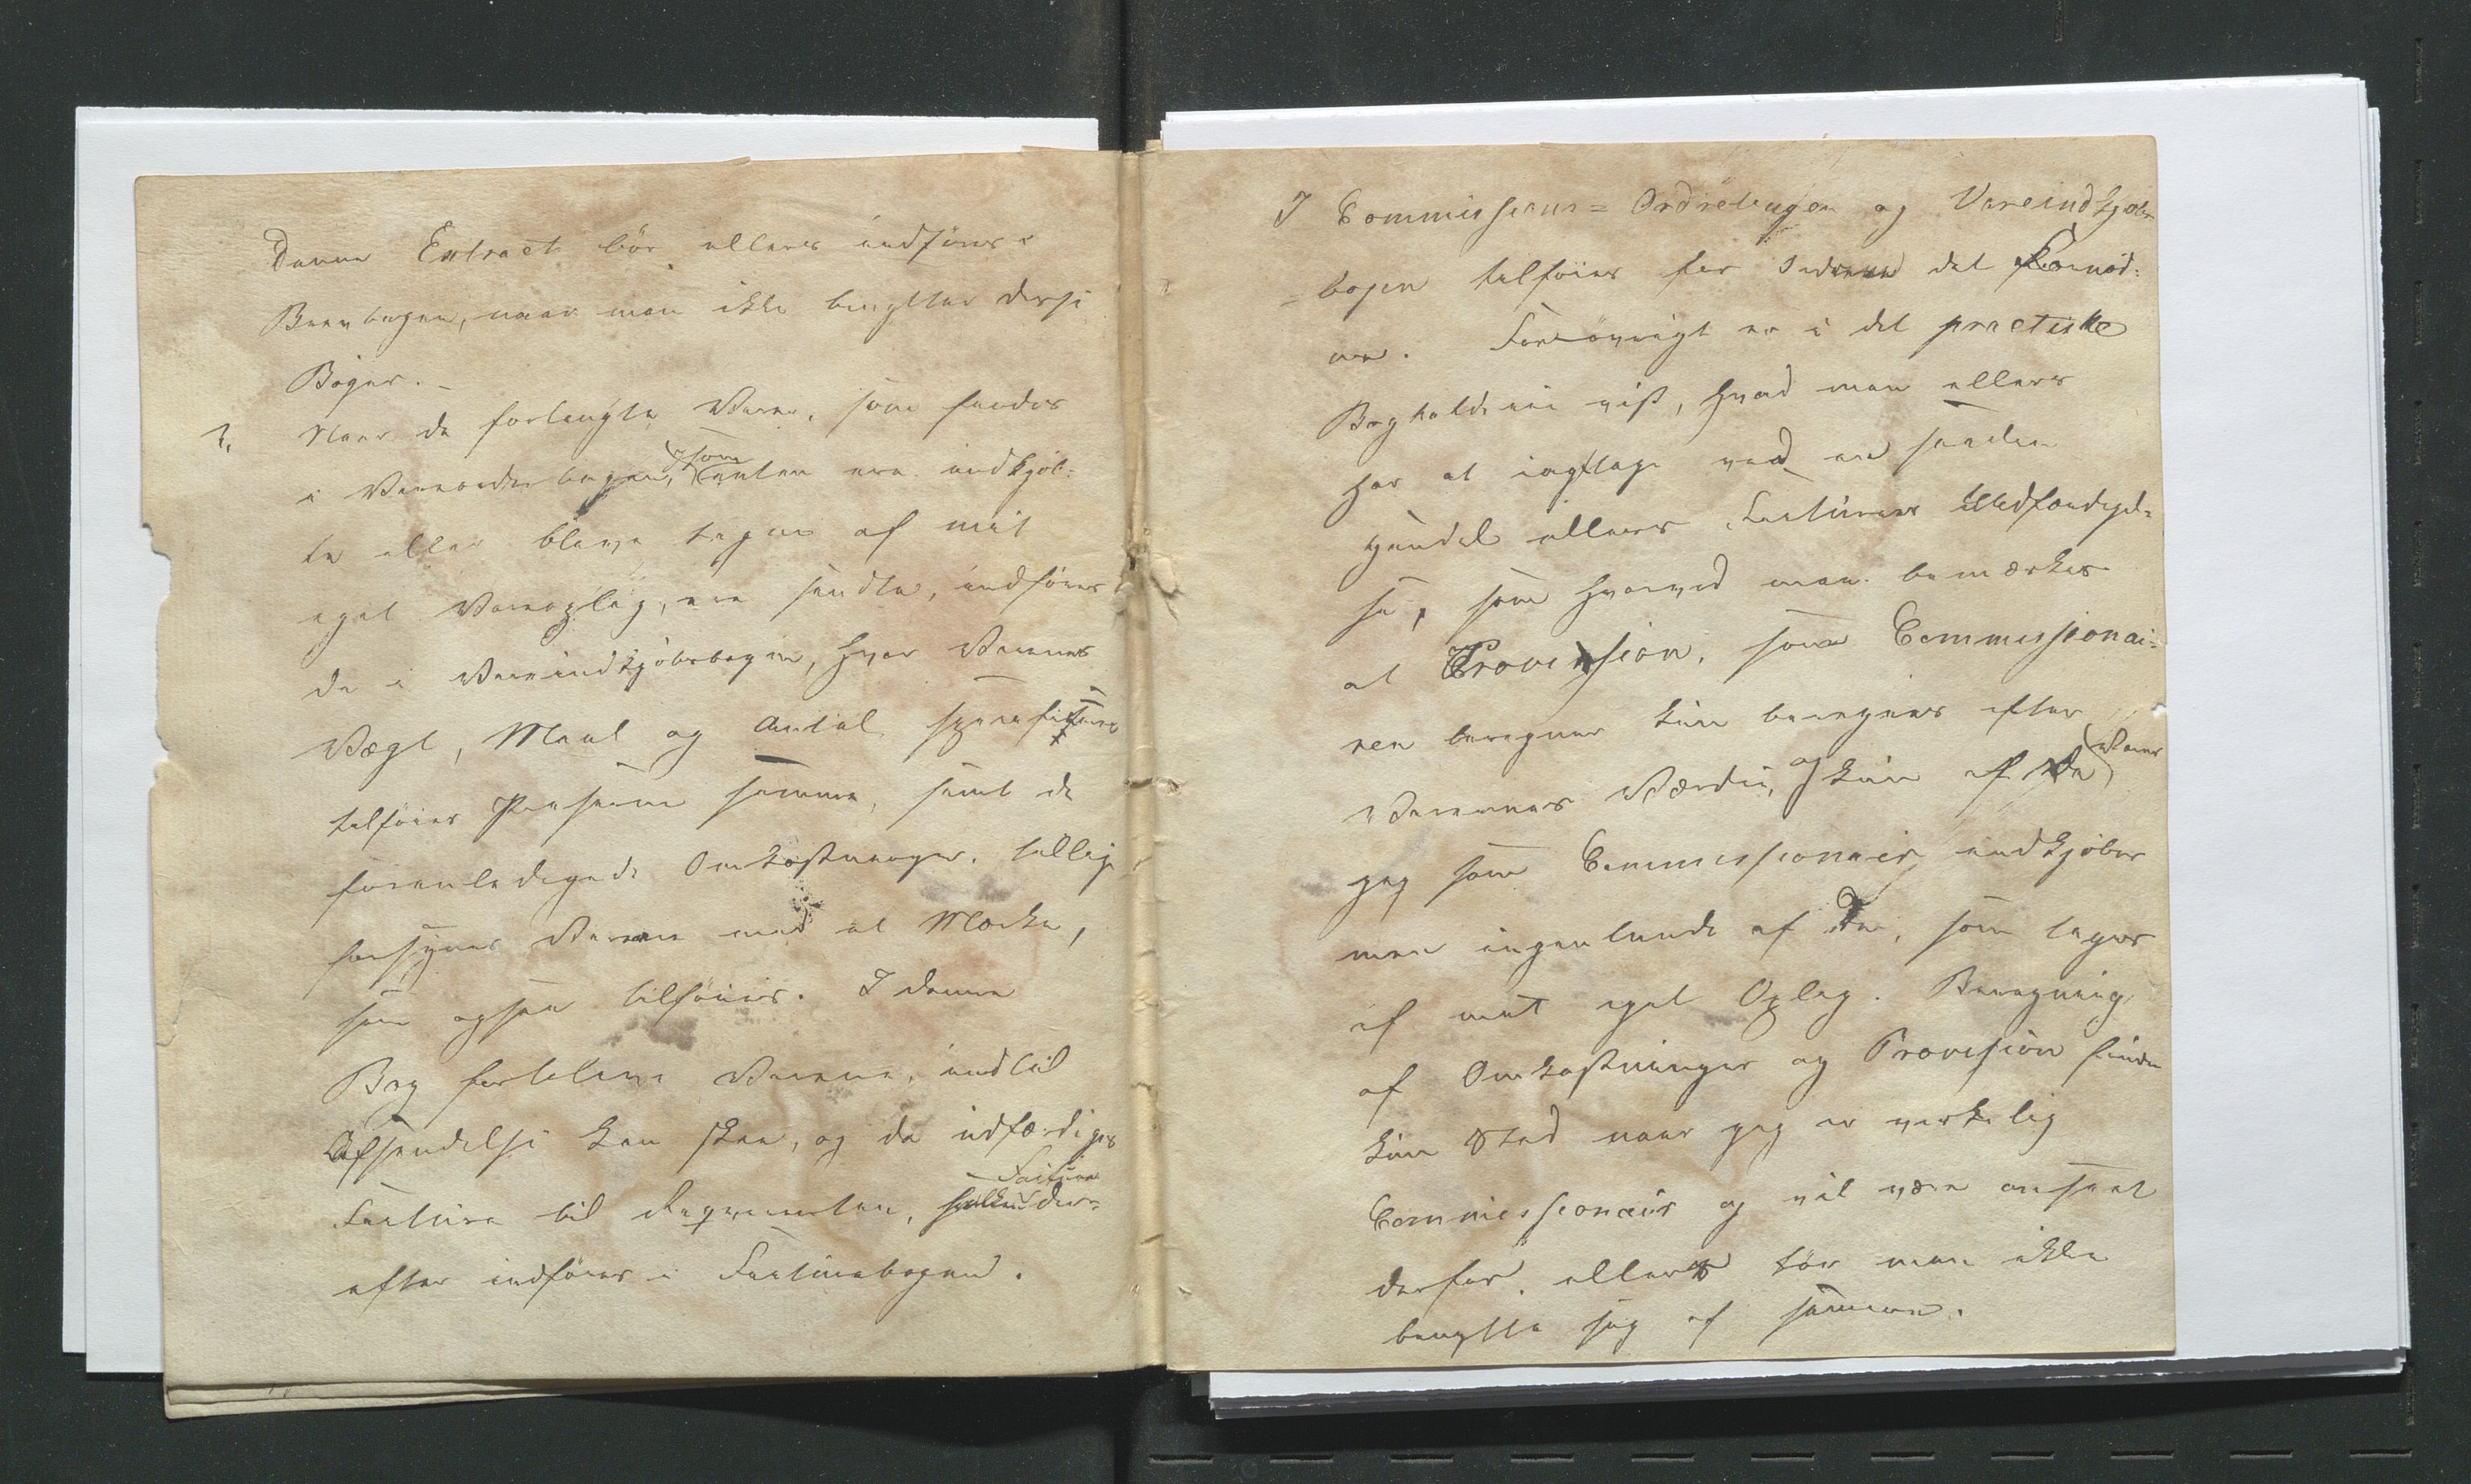 Denne Extract bör ellers indföres i
Brevbogen, naar man ikke benytter disse
Böger. –
2, Naar de forlangte Varer, som findes
i Vareordrebogen, som enten ere indkjöb=
te eller bleve tagne af mit
eget Vareoplag, ere sendte, indföres
de i Vareindkjöbsbogen, hvor Varenes
Vægt, Maal og Antal specificeres
tilföies Priserne samme, samt de
foranledigede Omkostninger. tillige
forsynes Varene med et Mærke,
som ogsaa tilföies. I denne
Bog forblive Varene, indtil
Afsendelse kan skee, og da udfærdiges
Factura til Requirenten, hvilken Factura der=
efter indföres i Facturabogen.
I Commissions= Ordrebogen og Vareindkjöbs=
=bogen tilföies for Ordrene det Fornöd=
ne. Forövrigt er i det practiske
Bogholderie vist, hvad man ellers
har at iagttage ved en saadan
Handel ellers Facturers Udfærdigel=
se, som hvorved man bemærkes
at Provision, som Commissionai=
ren beregner kun beregnes efter
Varernes Værdie, og kun af de Varer
jeg som Commissionair indkjöber
men ingenlunde af De, som tages
af mit eget Oplag. Beregning
af Omkostninger og Provision finder
kun Sted naar jeg er verkelig
Commissionair og vil være anseet
derfor, ellers tör man ikke
benytte sig af samme.